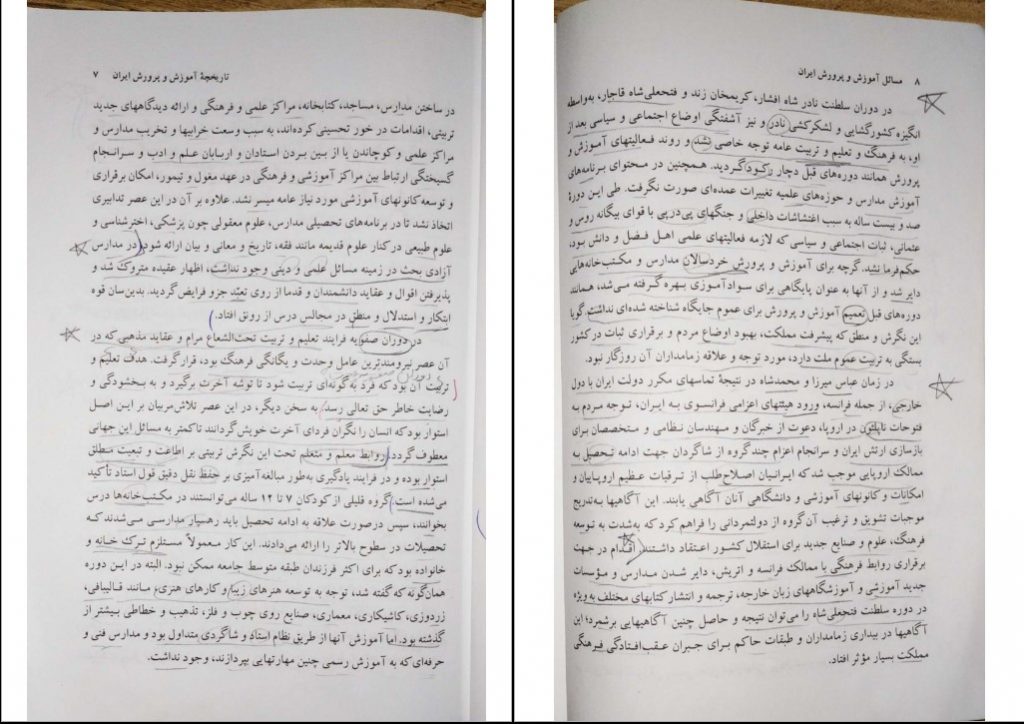 تاریخچهٔ آموزش و پرورش ایران ۷
در ساختن مدارس، مساجد، کتابخانه، مراکز علمی و فرهنگی و ارائه دیدگاههای جدید
تربیتی، اقدامات در خور تحسینی کرده‌اند، به سبب وسعت خرابیها و تخریب مدارس و
مراکز علمی و کوچاندن یا از بین بردن استادان و اربابان علم و ادب و سرانجام
گسیختگی ارتباط بین مراکز آموزشی و فرهنگی در عهد مغول و تیمور، امکان برقراری
و توسعه کانونهای آموزشی مورد نیاز عامه میسر نشد. علاوه بر آن در این عصر تدابیری
اتخاذ نشد تا در برنامه‌های تحصیلی مدارس، علوم معقولی چون پزشکی، اخترشناسی و
علوم طبیعی در کنار علوم قدیمه مانند فقه، تاریخ و معانی و بیان ارائه شود. در مدارس
آزادی بحث در زمینه مسائل علمی و دینی وجود نداشت، اظهار عقیده متروک شد و
پذیرفتن اقوال و عقاید دانشمندان و قدما از روی تعبّد جزو فرایض گردید. بدین‌سان قوه
ابتکار و استدلال و منطق در مجالس درس از رونق افتاد.
در دوران صفویه فرایند تعلیم و تربیت تحت‌الشعاع مرام و عقاید مذهبی که در
آن عصر نیرومندترین عامل وحدت و یگانگی فرهنگ بود، قرار گرفت. هدف تعلیم و
تربیت آن بود که فرد به گونه‌ای تربیت شود تا توشه آخرت برگیرد و به سخشودگی و
رضایت خاطر حق تعالی رسد. به سخن دیگر، در این عصر تلاش مربیان بر این اصل
استوار بود که انسان را نگران فردای آخرت خویش گردانند تا کمتر به مسائل این جهانی
معطوف گردد. روابط معلم و متعلم تحت این نگرش تربیتی بر اطاعت و تبعیت مطلق
استوار بوده و در فرایند یادگیری به‌طور مبالغه‌آمیزی بر حفظ نقل دقیق قول استاد تأکید
می‌شده است. گروه قلیلی از کودکان ۷ تا ۱۲ ساله می‌توانستند در مکتب‌خانه‌ها درس
بخوانند، سپس در‌صورت علاقه به ادامه تحصیل باید رهسپار مدارسی می‌شدند که
تحصیلات در سطوح بالاتر را ارائه می‌دادند. این کار معمولاً مستلزم ترک خانه و
خانواده بود که برای اکثر فرزندان طبقه متوسط جامعه ممکن نبود. البته در این دوره
همان‌گونه که گفته شد، توجه به توسعه هنرهای زیبا و کارهای هنری، مانند قالیبافی،
زردوزی، کاشیکاری، معماری، صنایع روی چوب و فلز، تذهیب و خطاطی بیشتر از
گذشته بود. اما آموزش آنها از طریق نظام استاد و شاگردی متداول بود و مدارس فنی و
حرفه‌ای که به آموزش رسمی چنین مهارتهایی بپردازند، وجود نداشت.
۸ مسائل آموزش و پرورش ایران
در دوران سلطنت نادر شاه افشار، کریمخان زند و فتحعلی‌شاه قاجار، به‌واسطه
انگیزه کشورگشایی و لشکرکشی نادر و نیز آشفتگی اوضاع اجتماعی و سیاسی بعد از
او، به فرهنگ و تعلیم و تربیت عامه توجه خاصی نشد و روند فعالیتهای آموزش و
پرورش همانند دوره‌های قبل دچار رکود گردید. همچنین در محتوای برنامه‌های
آموزش مدارس و حوزه‌های علمیه تغییرات عمده‌ای صورت نگرفت. طی این دورهٔ
صد و بیست ساله به سبب اغتشاشات داخلی و جنگهای پی‌درپی با قوای بیگانه روس و
عثمانی، ثبات اجتماعی و سیاسی که لازمه فعالیتهای علمی اهل فضل و دانش بود،
حکم‌فرما نشد. گرچه برای آموزش و پرورش خردسالان مدارس و مکتب‌خانه‌هایی
دایر شد و از آنها به عنوان پایگاهی برای سوادآموزی بهره گرفته می‌شد، همانند
دوره‌های قبل تعمیم آموزش و پرورش برای عموم جایگاه شناخته شده‌ای نداشت. گویا
این نگرش و منطق که پیشرفت مملکت، بهبود اوضاع مردم و برقراری ثبات در کشور
بستگی به تربیت عموم ملت دارد، مورد توجه و علاقه زمامداران آن روزگار نبود.
در زمان عباس میرزا و محمدشاه در نتیجهٔ تماسهای مکرر دولت ایران با دول
خارجی، از جمله فرانسه، ورود هیئتهای اعزامی فرانسوی به ایران، توجه مردم به
فتوحات ناپلئون در اروپا، دعوت از خبرگان و مهندسان نظامی و متخصصان برای
بازسازی ارتش ایران و سرانجام اعزام چند گروه از شاگردان جهت ادامه تحصیل به
ممالک اروپایی موجب شد که ایرانیان اصلاح‌طلب از ترقیات عظیم اروپاییان و
امکانات و کانونهای آموزشی و دانشگاهی آنان آگاهی یابند. این آگاهیها به‌تدریج
موجبات تشویق و ترغیب آن گروه از دولتمردانی را فراهم کرد که به‌شدت به توسعه
فرهنگ، علوم و صنایع جدید برای استقلال کشور اعتقاد داشتند. اقدام در جهت
برقراری روابط فرهنگی با ممالک فرانسه و اتریش، دایر شدن مدارس و مؤسسات
جدید آموزشی و آموزشگاههای زبان خارجه، ترجمه و انتشار کتابهای مختلف به ویژه
در دوره سلطنت فتحعلی‌شاه را می‌توان نتیجه و حاصل چنین آگاهیهایی برشمرد؛ این
آگاهیها در بیداری زمامداران و طبقات حاکم برای جبران عقب‌افتادگی فرهنگی
مملکت بسیار مؤثر افتاد.